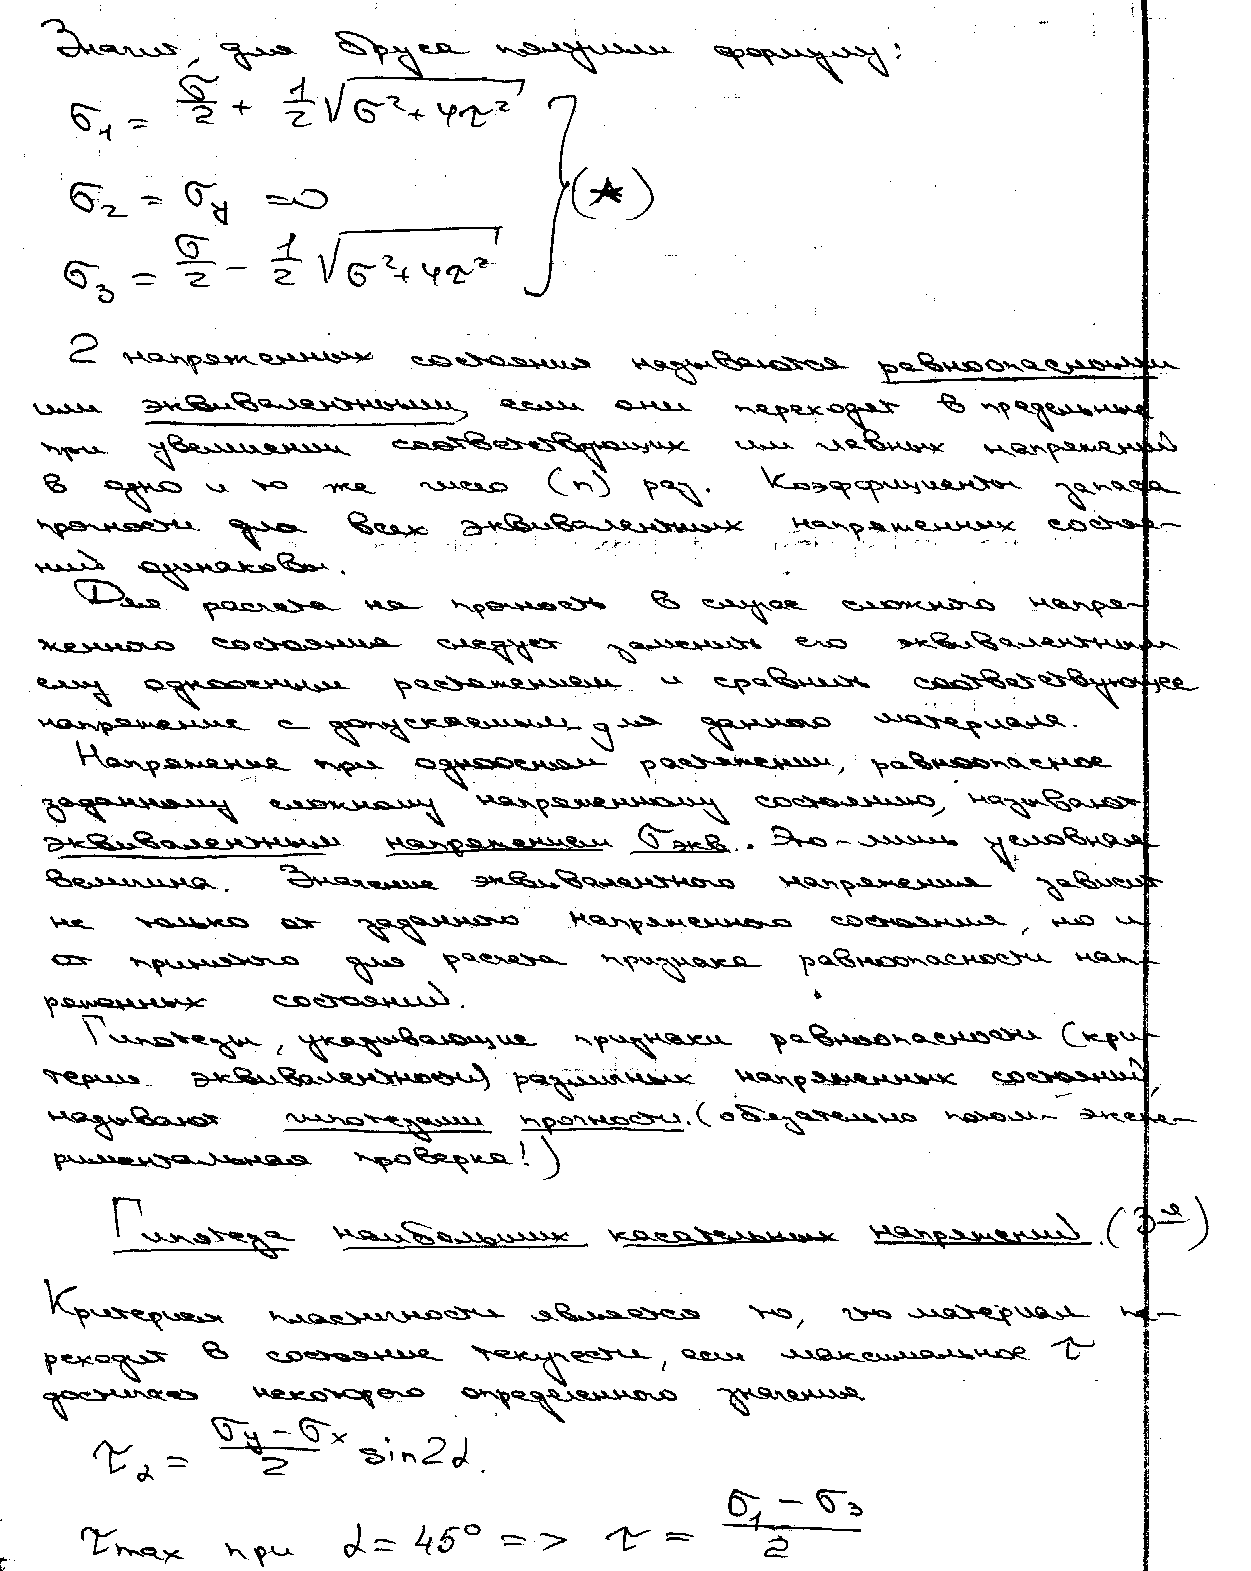 Значит, для бруса получили формулу:
σ₁ = σ/2 + 1/2 √(σ² + 4τ²)
σ₂ = σy = 0 (*)
σ₃ = σ/2 − 1/2 √(σ² + 4τ²)
2 напряженных состояния называются равноопасными
или эквивалентными, если они переходят в предельные
при увеличении соответствующих им главных напряжений
в одно и то же число (n) раз. Коэффициенты запаса
прочности для всех эквивалентных напряженных состоя-
ний одинаковы.
Для расчета на прочность в случае сложного напря-
женного состояния следует заменить его эквивалентным
ему одноосным растяжением и сравнить соответствующее
напряжение с допускаемым для данного материала.
Напряжение при одноосном растяжении, равноопасное
заданному сложному напряженному состоянию, называют
эквивалентным напряжением σэкв. Это – лишь условная
величина. Значение эквивалентного напряжения зависит
не только от заданного напряженного состояния, но и
от принятого для расчета признака равноопасности нап-
ряженных состояний.
Гипотезы, указывающие признаки равноопасности (кри-
терии эквивалентности) различных напряженных состояний,
называют гипотезами прочности. (обязательно потом – экспе-
риментальная проверка!)
Гипотеза наибольших касательных напряжений. (3-я)
Критерием пластичности является то, что материал пе-
реходит в состояние текучести, если максимальное τ
достигает некоторого определенного значения
τα = (σy − σx)/2 sin2α.
τmax при α = 45° => τ = (σ₁ − σ₃)/2